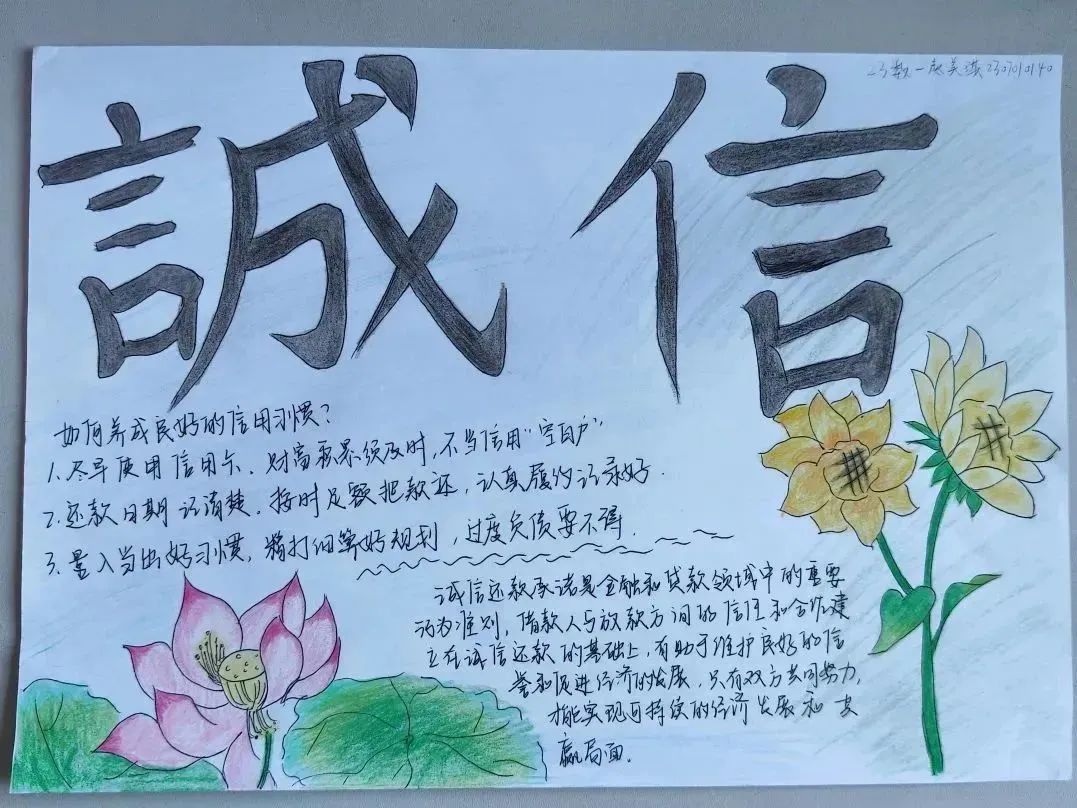 23数一赵美淇230701140
誠信
如何养成良好的信用习惯?
1.尽早使用信用卡,财富积累须及时,不当信用“空白户”
2.还款日期记清楚,按时足额把款还,认真履约记录好.
3.量入当出好习惯,精打细算好规划,过度负债要不得.
诚信还款承诺是金融和贷款领域中的重要
行为准则,借款人与放款方间的信任和合作建
立在诚信还款的基础上,有助于维护良好的信
誉和促进经济的发展,只有双方共同努力,
才能实现可持续的经济发展和共
赢局面.